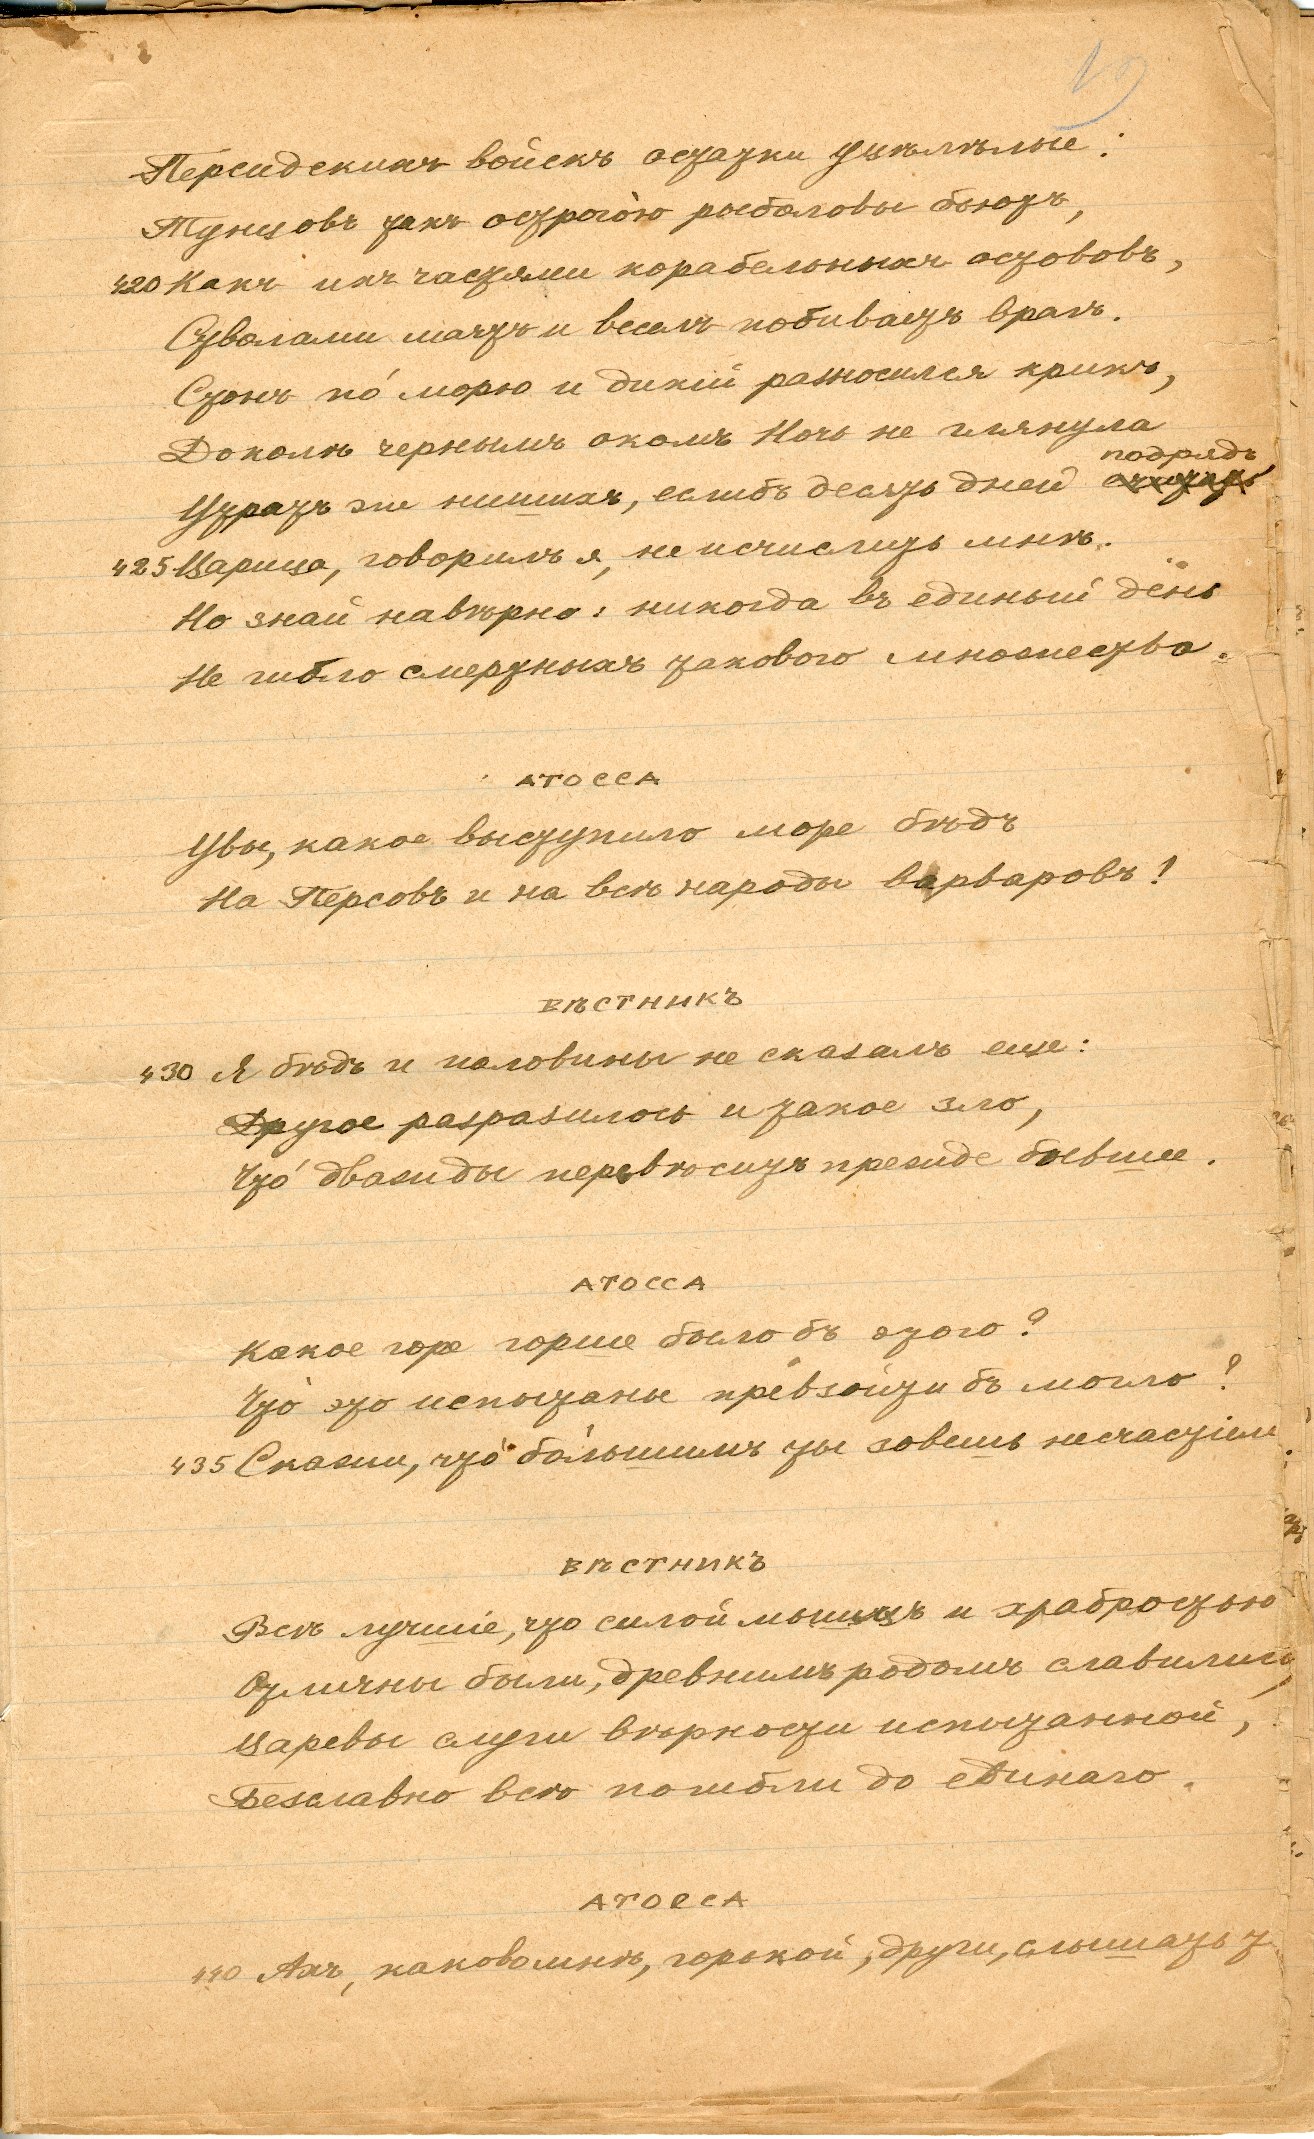 19
Персидскихъ войскъ остатки уцѣлѣлые:
Тунцовъ такъ острогою рыболовы бьютъ,
420 Какъ ихъ частями корабельныхъ остововъ,
Стволами мачтъ и веселъ побиваетъ врагъ.
Стонъ по́ морю и дикій разносился крикъ,
Доколѣ чернымъ окомъ Ночь не глянула
подрядъ
Утратъ же нашихъ, еслибъ десять дней
425 Царица, говорилъ я, не исчислить мнѣ.
Но знай навѣрно: никогда въ единый день
Не гибло смертныхъ таковаго множества.
АТОССА
Увы, какое выступило море бѣдъ
На Персовъ и на всѣ народы варваровъ!
ВѢСТНИКЪ
430 Я бѣдъ и половины не сказалъ еще:
Другое разразилось и такое зло,
Что́ дважды перевѣситъ прежде бывшее.
АТОССА
Какое горе горше было бъ этого?
Что́ это испытанье превзойти бъ могло?
435 Скажи, что́ бо́льшимъ ты зовешь несчастіемъ.
ВѢСТНИКЪ
Всѣ лучшіе, что силой мышцъ и храбростью
Отличны были, древнимъ родомъ славились,
Царевы слуги вѣрности испытанной,
Безславно всѣ погибли до единаго.
АТОССА
440 Ахъ, каково мнѣ, горькой, други, слышать т